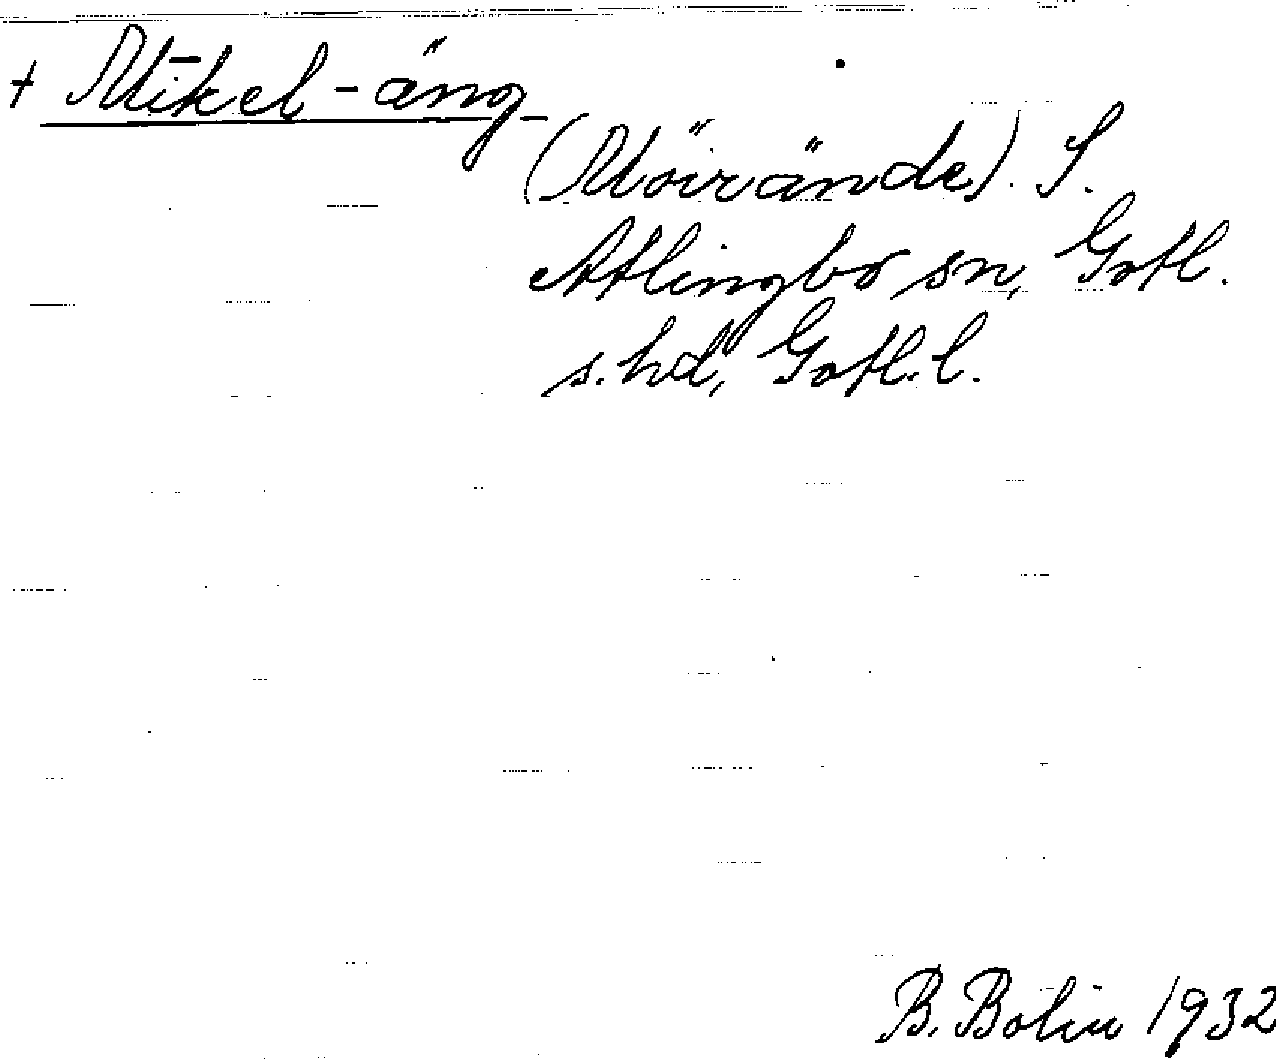 + Mīkel-äng
(Möirände). S.
Atlingbo sn, Gotl.
s. hd, Gotl. l.
B. Bolin 1932